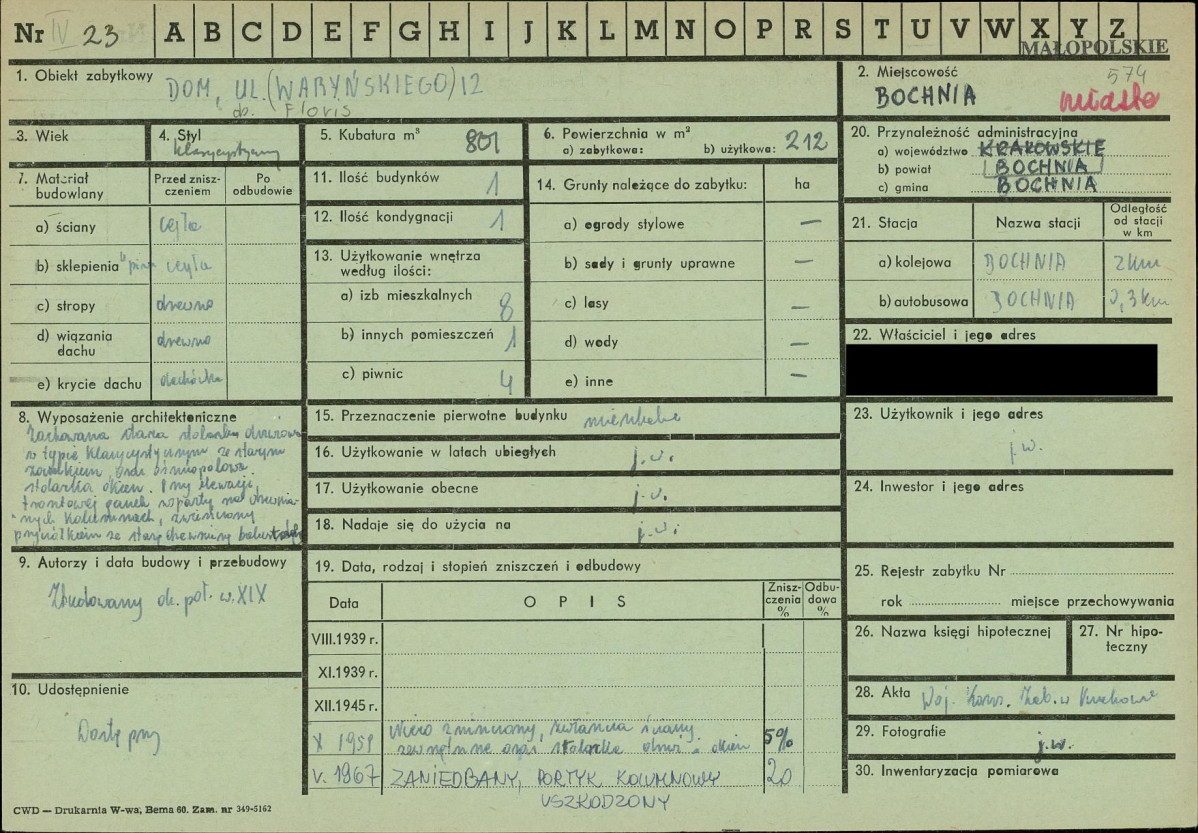 Nr IV 23 A B C D E F G H I J K L M N O P R S T U V W X Y Z
MAŁOPOLSKIE
1. Obiekt zabytkowy
DOM, UL. (WARYŃSKIEGO) 12
ob. Floris
2. Miejscowość
574
BOCHNIA miasto
3. Wiek
4. Styl
klasycystyczny
5. Kubatura m³ 801
6. Powierzchnia w m²
a) zabytkowa: b) użytkowa: 212
20. Przynależność administracyjna
a) województwo KRAKOWSKIE
b) powiat BOCHNIA
c) gmina BOCHNIA
7. Materiał budowlany
Przed zniszczeniem
Po odbudowie
a) ściany cegła
b) sklepienia piwn cegła
c) stropy drewno
d) wiązania dachu drewno
e) krycie dachu dachówka
11. Ilość budynków 1
12. Ilość kondygnacji 1
13. Użytkowanie wnętrza według ilości:
a) izb mieszkalnych 8
b) innych pomieszczeń 1
c) piwnic 4
14. Grunty należące do zabytku: ha
a) ogrody stylowe —
b) sady i grunty uprawne —
c) lasy —
d) wody —
e) inne —
21. Stacja Nazwa stacji Odległość od stacji w km
a) kolejowa BOCHNIA 2 km
b) autobusowa BOCHNIA 0,3 km
22. Właściciel i jego adres
8. Wyposażenie architektoniczne
Zachowana stara stolarka drzwiowa
w typie klasycystycznym ze starym
zamkiem, oraz ośmiopolowa
stolarka okien. Przy elewacji
frontowej ganek wsparty na drewnia-
nych kolumnach, zwieńczony
przyczółkiem ze starą drewnianą balustradą
15. Przeznaczenie pierwotne budynku mieszkalne
16. Użytkowanie w latach ubiegłych j.w.
17. Użytkowanie obecne j.w.
18. Nadaje się do użycia na j.w.
23. Użytkownik i jego adres
j.w.
24. Inwestor i jego adres
9. Autorzy i data budowy i przebudowy
Zbudowany ok. poł. w. XIX
10. Udostępnienie
Dostępny
19. Data, rodzaj i stopień zniszczeń i odbudowy
Data OPIS Zniszczenia % Odbudowa %
VIII.1939 r.
XI.1939 r.
XII.1945 r.
X 1959 Nieco zniszczony, zwłaszcza ściany
zewnętrzne oraz stolarka drzwi i okien 5%
V. 1967 ZANIEDBANY, PORTYK KOLUMNOWY 20
USZKODZONY
25. Rejestr zabytku Nr
rok miejsce przechowywania
26. Nazwa księgi hipotecznej
27. Nr hipoteczny
28. Akta Woj. Kons. Zab. w Krakowie
29. Fotografie j.w.
30. Inwentaryzacja pomiarowa
CWD — Drukarnia W-wa, Bema 60. Zam. nr 349-5162